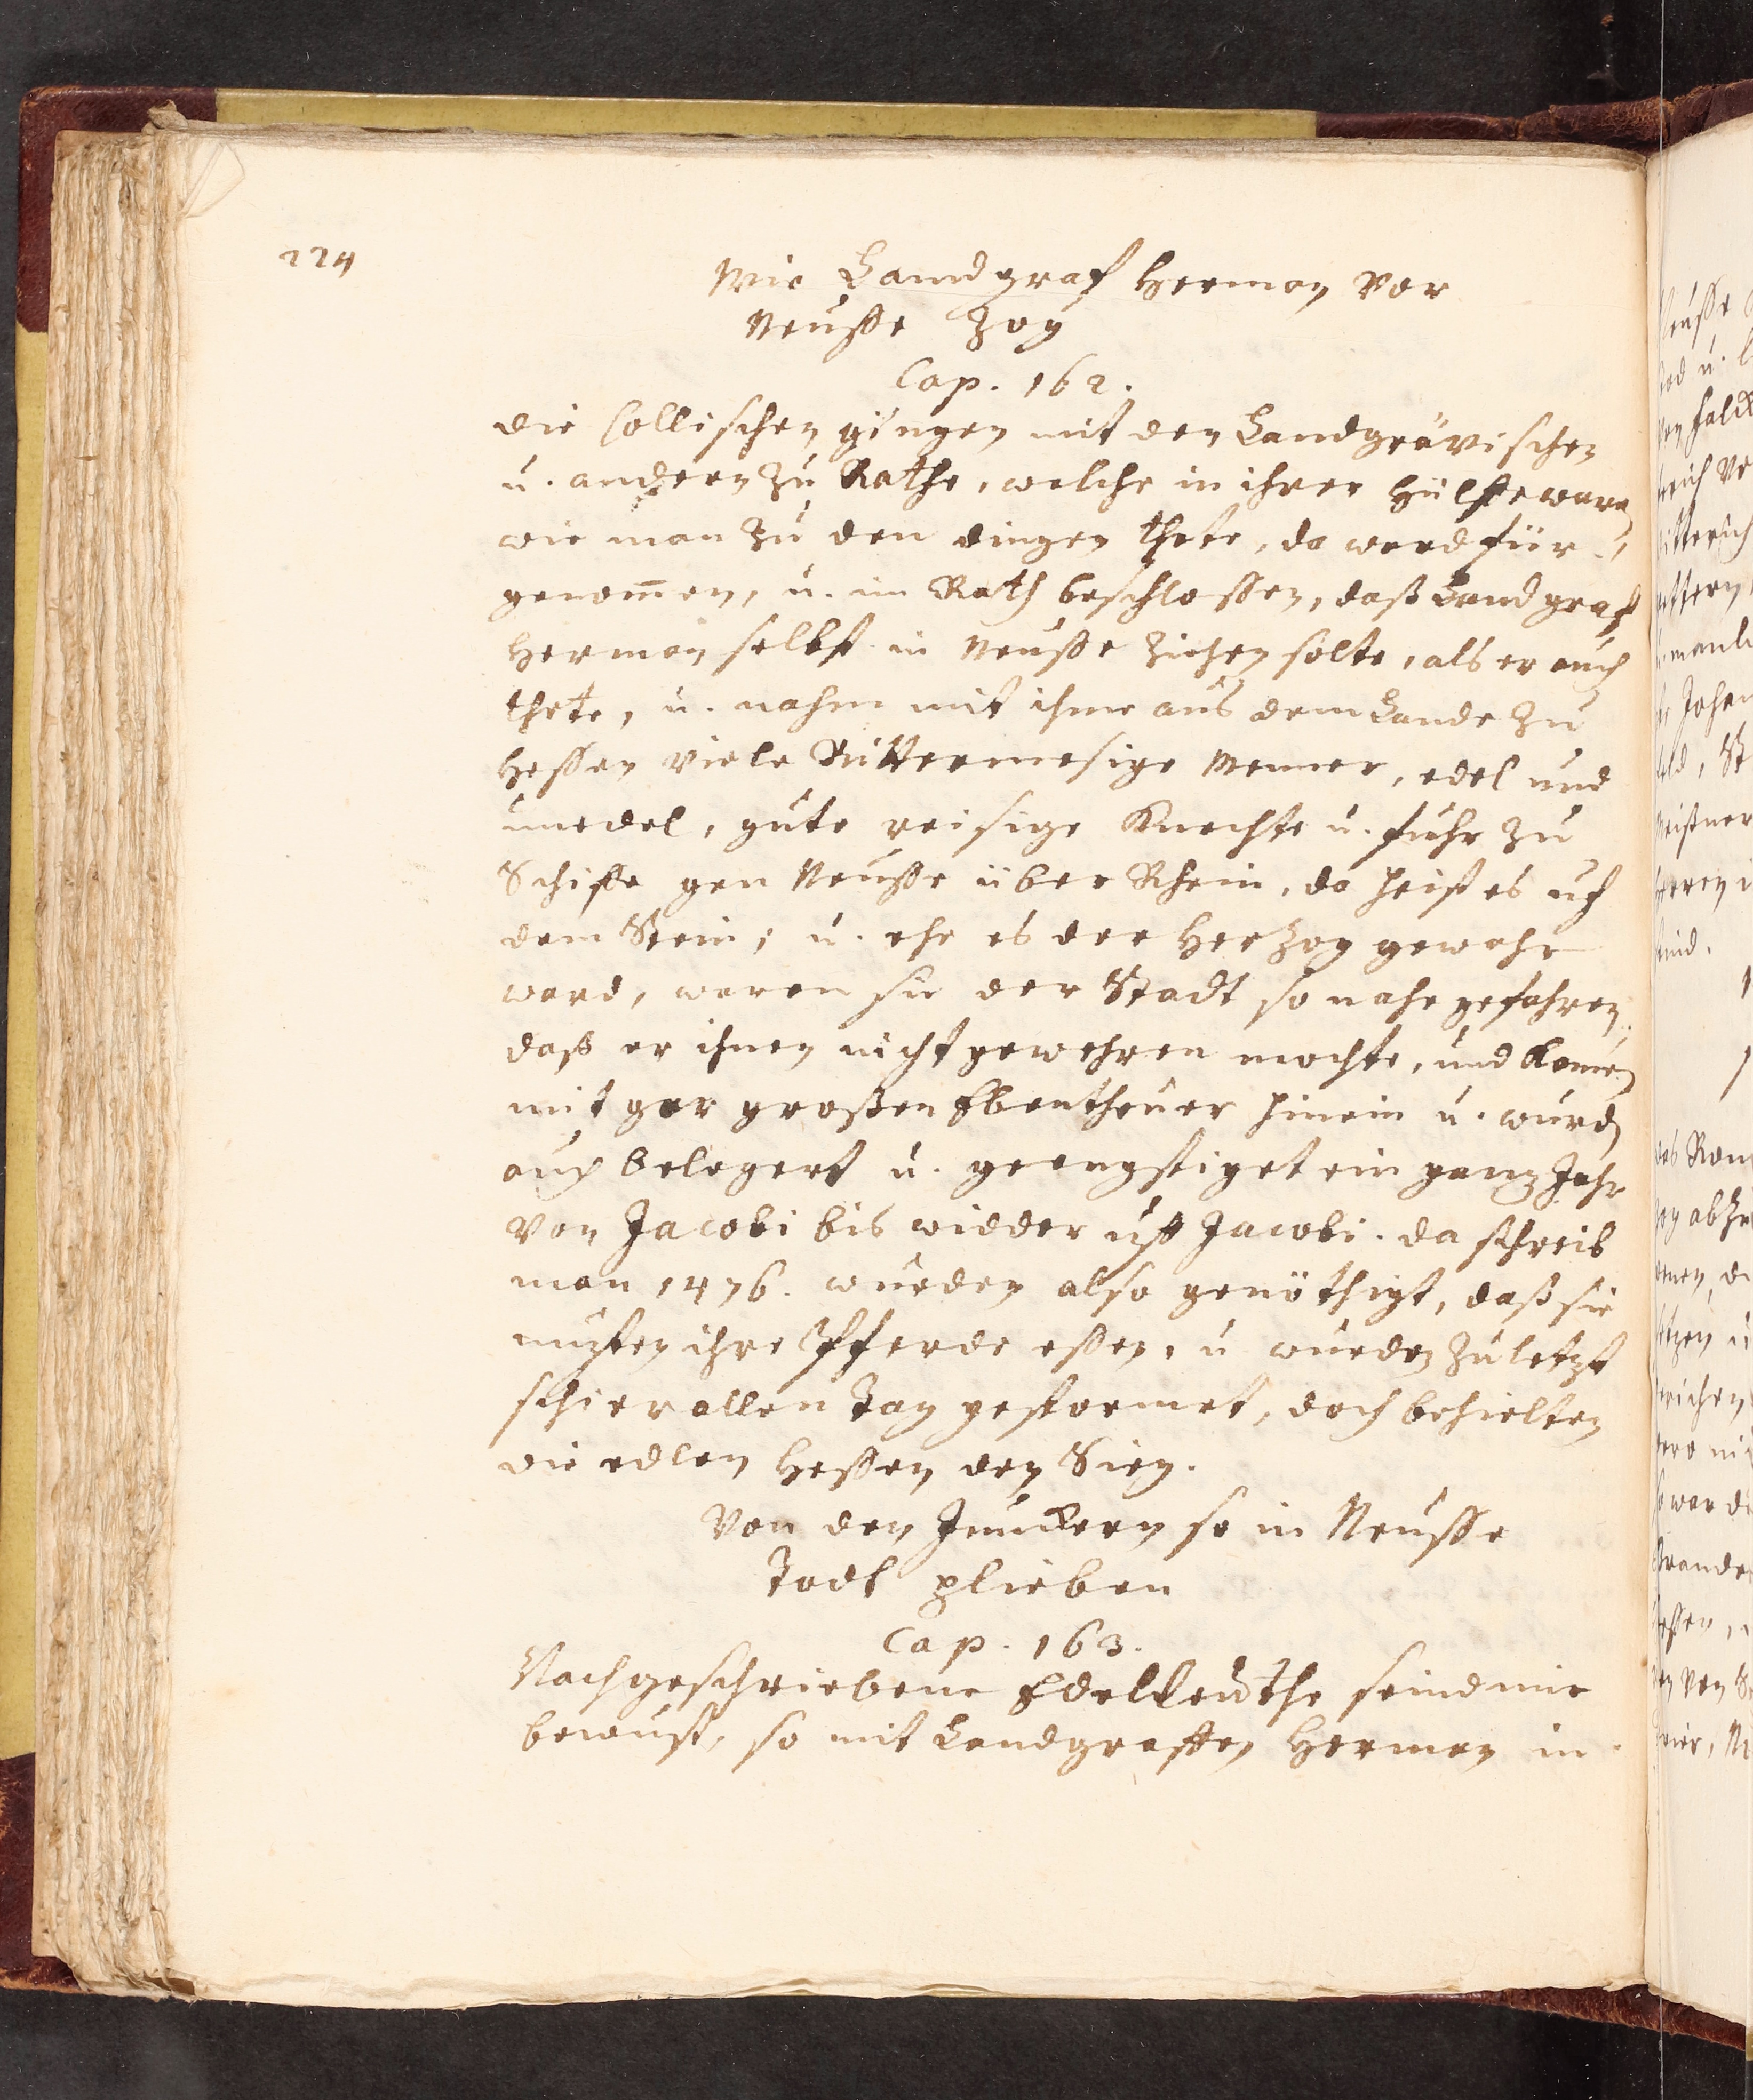 224
Wie Landgraf Herman vor
Neusse Zog
Cap. 162.
Die Collischen gingen mit den Landgrävischen
u. andern zu Rathe, welche in ihrer Hülffe waren
wie man zu den dingen thete, da ward für-
genom̅en, u. im Rath beschlossen, daß Landgraf
Herman selbst in Neusse ziehen solte, als er auch
thete, u. nahm mit ihme aus dem Lande zu
Hessen viele Rittermesige Menner, edel und
unedel, gute reisige Knechte u. fuhr zu
Schiffe gen Neusse über Rhein, da heist es uf
dem Stein; u. ehe es der Herzog gewahr
ward, waren sie der Stadt so nahe gefahren,
daß er ihnen nicht gewehren mochte, und kamen
mit gar großen Ebentheuer hinein u. wurd
auch belegert u. geengstiget ein ganz Jahr
von Jacobi bis widder uff Jacobi. da schreib
man 1476. wurden also genöthigt, daß sie
musten ihre Pferde essen, u. wurden zuletzt
schier allen Tag gestormet, doch behielten
die edlen Hessen den Sieg.
Von den Junckern so in Neusse
Todt plieben
Cap. 163.
Nachgeschriebene Edelleuthe seind mir
bewust, so mit Landgraffen Herman in